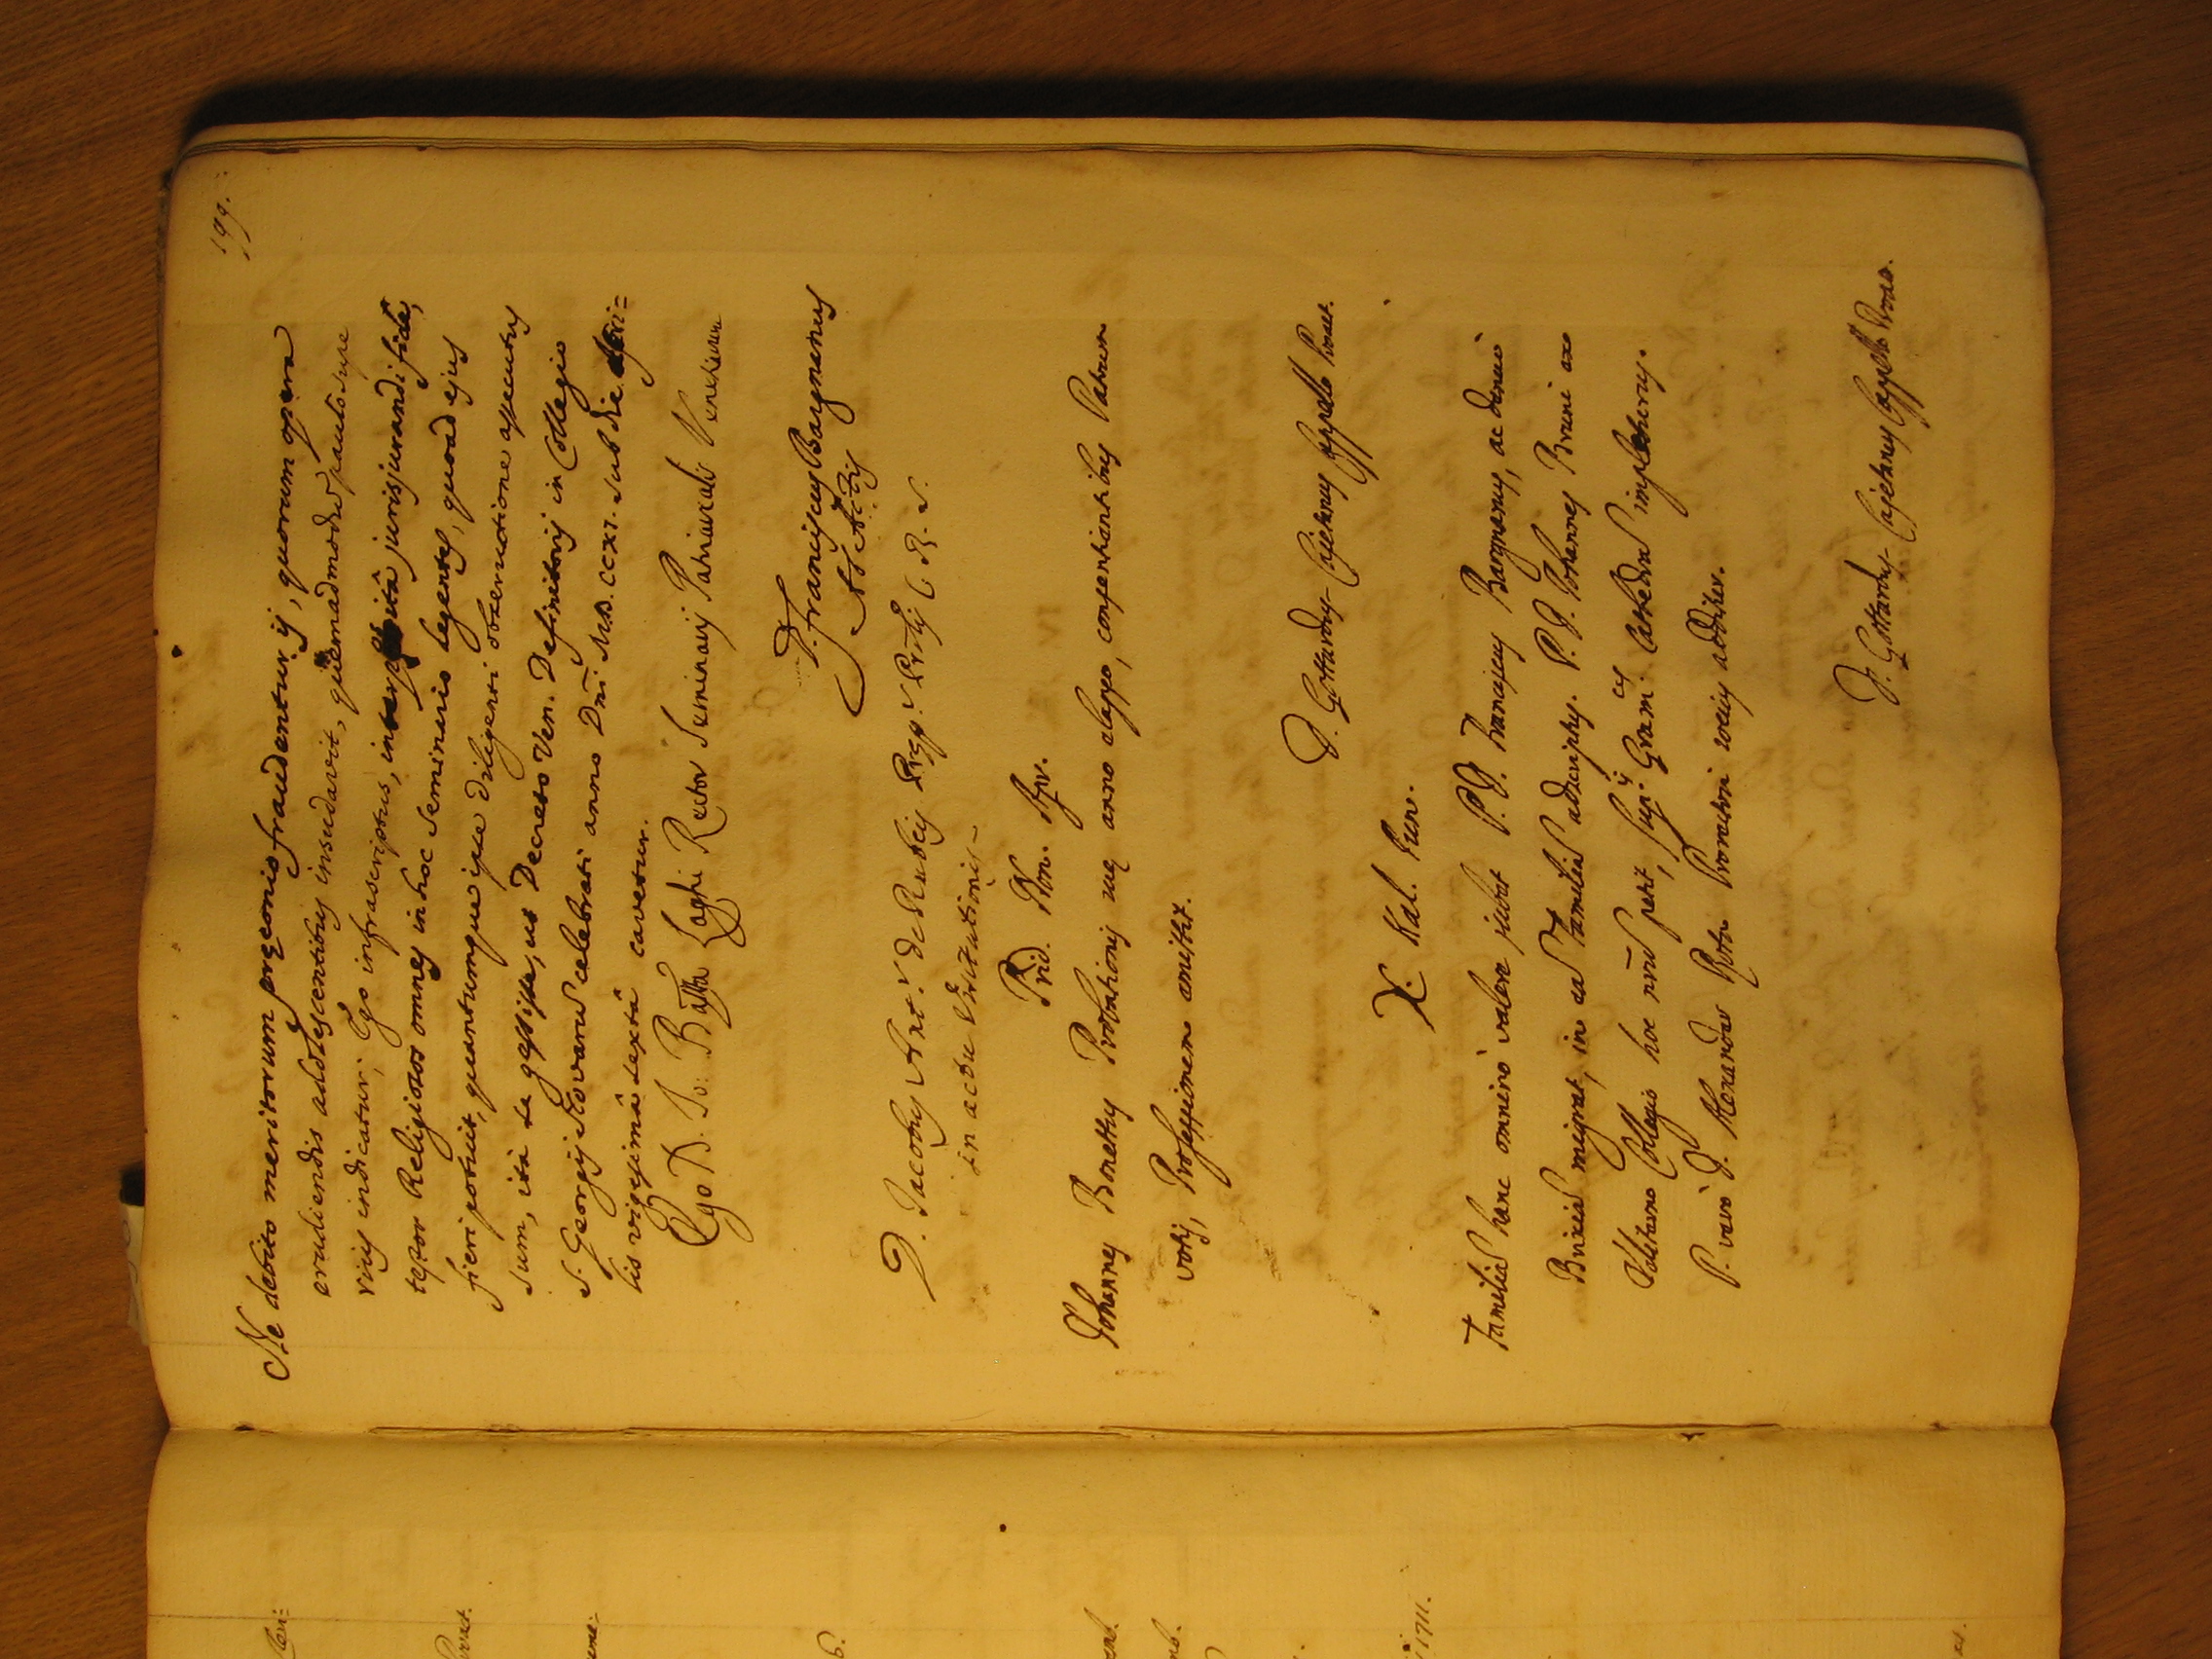 199.
Ne debito meritorum pręconio fraudentur ij, quorum opera
erudiendis adolescentibus insudavit, quemadmodum paulo supe
rius indicatur; Ego infrascriptus, interposita jurisjurandi fide,
testor Religiosos omnes in hoc Seminario degentes, quoad ejus
fieri potuit, quantumque ipse diligenti observatione assecutus
sum, ità se gessisse, ut Decreto Ven. Definitorij in Collegio
S. Georgij Novariæ celebrati anno Dni MD.CCXI. sub die Apri=
lis vigesima sexta cavetur.
Ego D. Io: Bapta Laghi Rector Seminarij Patriarcalis Venetiarum
D. Franciscus Bargnanus
D. Jacobus Ant.s de Rubeis Prep.s Prlis C. R. S.
in actu Visitationis
Prid. Non. Apr.
Johannes Bonettus Probationis suę anno elapso, consentientibus Patrum
votis, Professionem emisit.
D. Gottardus Cajetanus Cappello
X. Kal. Jun.
Familiam hanc omnino valere jubet P. D. Franciscus Bargnanus, ac denuò
Brixiam migrat, in eam Familiam adscriptus. P. D. Johannes Bruni ex
Collegio hoc nrum petit, Cathedram impleturus.
P. verò D. Alexander Rota sociis additur.
D. Gottardus Cajetanus Cappello
1711.